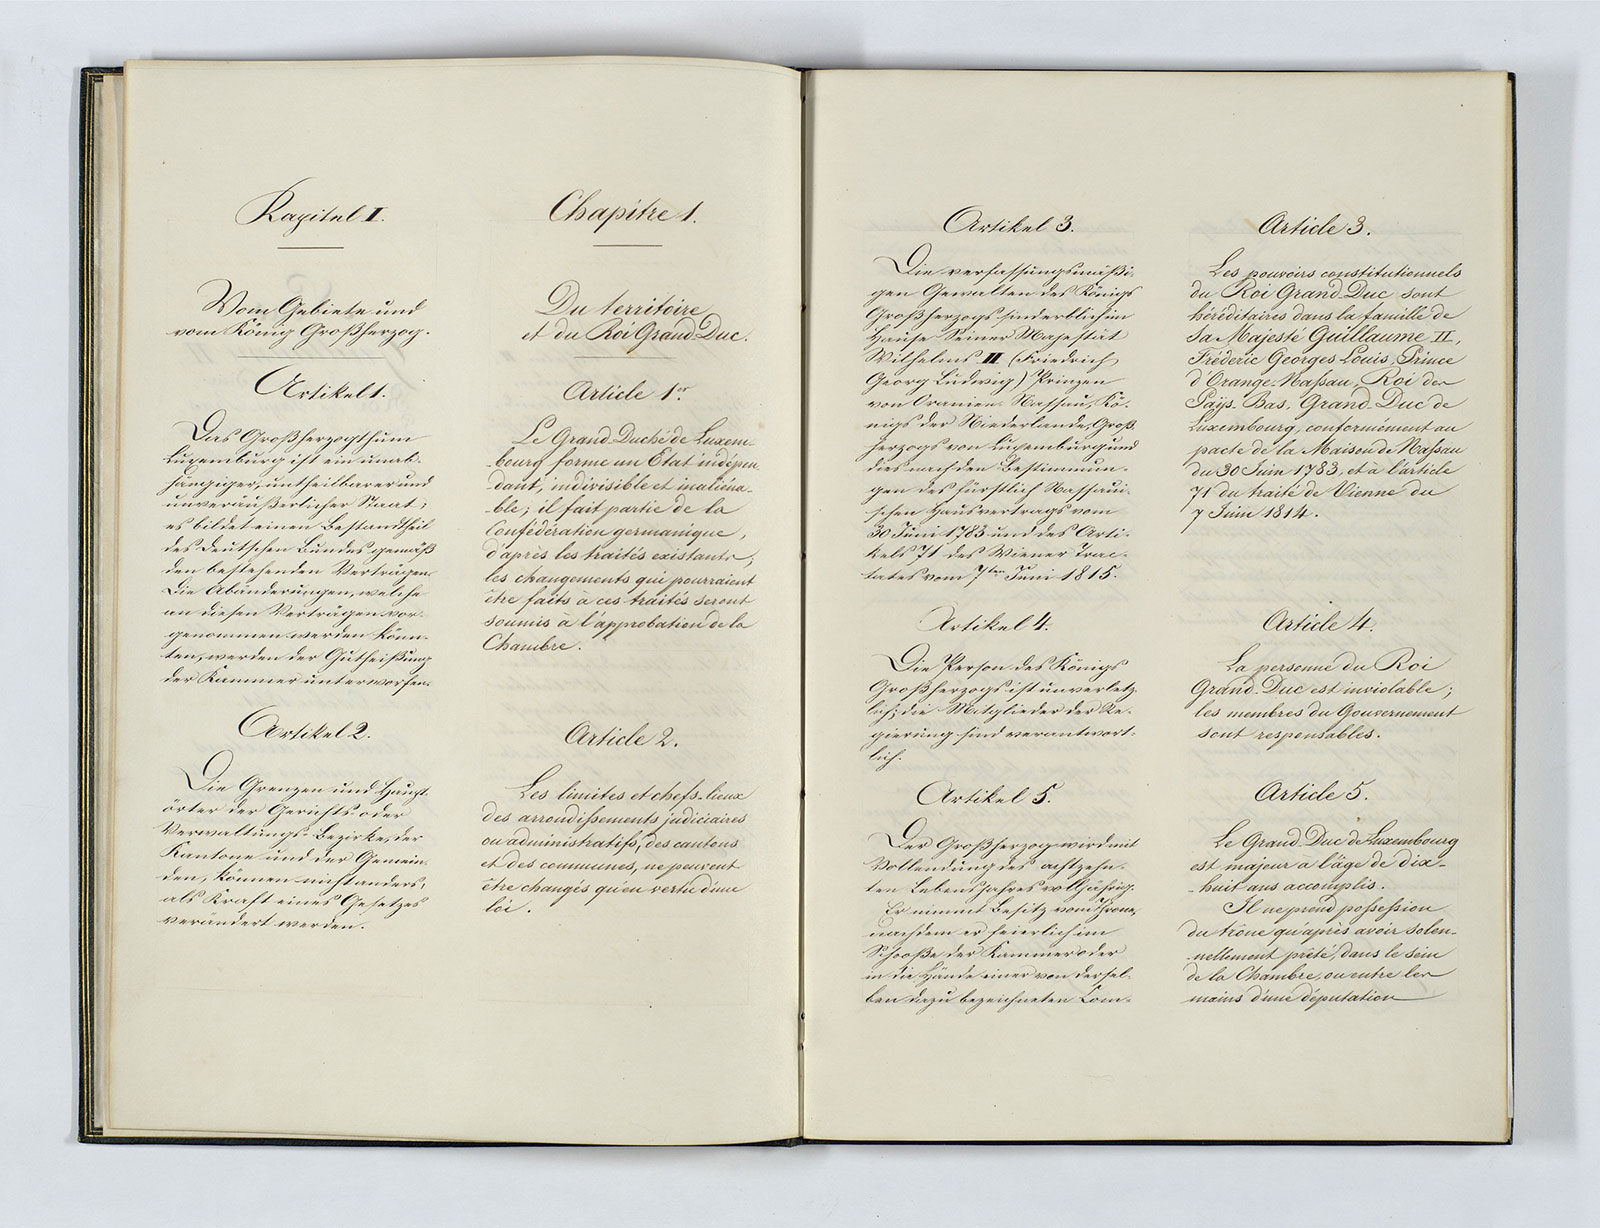 Kapitel I.
Vom Gebiete und
vom König Großherzog.
Artikel 1.
Das Großherzogthum
Luxemburg ist ein unab-
hängiger, untheilbarer und
unveräußerlicher Staat;
es bildet einen Bestandtheil
des deutschen Bundes gemäß
den bestehenden Verträgen.
Die Abänderungen, welche
an diesen Verträgen vor-
genommen werden könn-
ten, werden der Gutheißung
der Kammer unterworfen.
Artikel 2.
Die Grenzen und Haupt-
örter der Gerichts- oder
Verwaltungs-Bezirke, der
Kantone und der Gemein-
den, können nicht anders,
als Kraft eines Gesetzes
verändert werden.
Chapitre 1.
Du territoire
et du Roi Grand-Duc.
Article 1er.
Le Grand-Duché de Luxem-
-bourg forme un Etat indépen-
-dant, indivisible et inaliéna-
-ble; il fait partie de la
Confédération germanique,
d'après les traités existants,
les changements qui pourraient
être faits à ces traités seront
soumis à l'approbation de la
Chambre.
Article 2.
Les limites et chefs-lieux
des arrondissements judiciaires
ou administratifs, des cantons
et des communes, ne peuvent
être changés qu'en vertu d'une
loi.
Artikel 3.
Die verfassungsmäßi-
gen Gewalten des Königs
Großherzogs sind erblich im
Hause Seiner Majestät
Wilhelms II (Friedrich,
Georg Ludwig) Prinzen
von Oranien-Nassau, Kö-
nigs der Niederlande, Groß-
herzogs von Luxemburg und
dies nach den Bestimmun-
gen des fürstlich Nassaui-
schen Hausvertrags vom
30 Juni 1783 und des Arti-
kels 71 des Wiener Trac-
tates vom 7ten Juni 1815.
Artikel 4.
Die Person des Königs
Großherzogs ist unverletz-
lich; die Mitglieder der Re-
gierung sind verantwort-
lich.
Artikel 5.
Der Großherzog wird mit
Vollendung des achtzehn-
ten Lebensjahres volljährig.
Er nimmt Besitz vom Throne,
nachdem er feierlich im
Schooße der Kammer oder
in die Hände einer von dersel-
ben dazu bezeichneten Com-
Article 3.
Les pouvoirs constitutionnels
du Roi Grand-Duc sont
héréditaires dans la famille de
Sa Majesté Guillaume II,
Fréderic Georges Louis, Prince
d'Orange-Nassau, Roi des
Pays-Bas, Grand-Duc de
Luxembourg, conformément au
pacte de la Maison de Nassau
du 30 Juin 1783, et à l'article
71 du traité de Vienne du
7 Juin 1814.
Article 4.
La personne du Roi
Grand-Duc est inviolable;
les membres du Gouvernement
sont responsables.
Article 5.
Le Grand-Duc de Luxembourg
est majeur à l'âge de dix-
-huit ans accomplis.
Il ne prend possession
du trône qu'après avoir solen-
-nellement prêté, dans le sein
de la Chambre, ou entre les
mains d'une députation